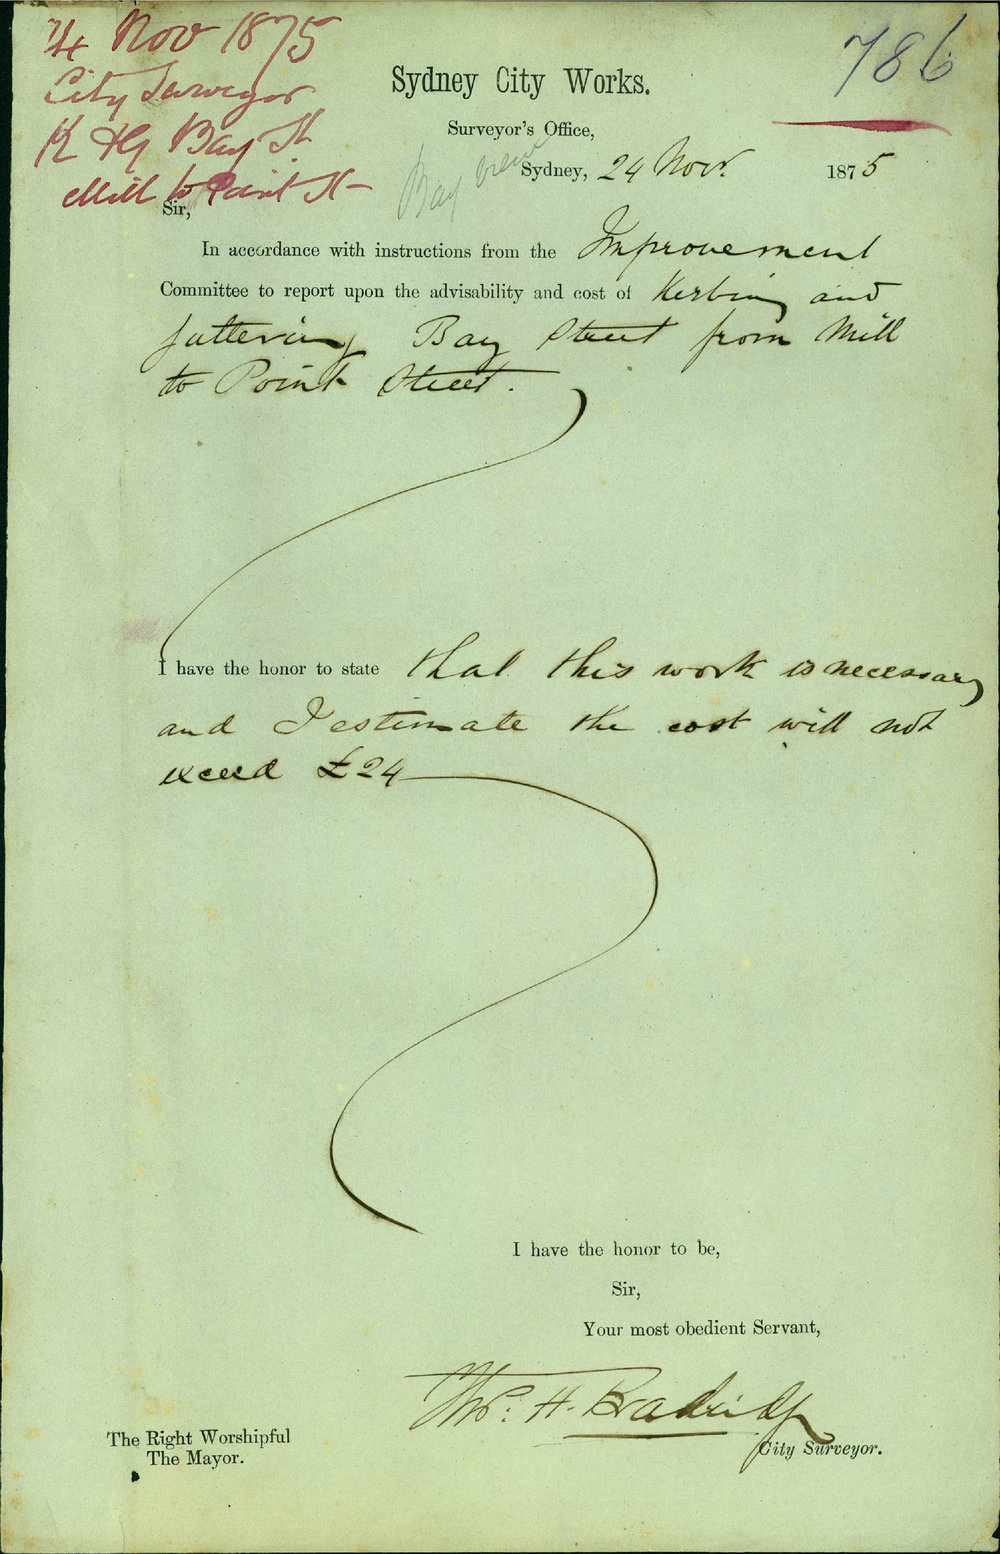 24 Nov 1875
City Surveyor
K & G Bay St
Mill to Point St
786
Sydney City Works.
Surveyor's Office,
Bay
Sydney, 24 Novr. 1875
Sir,
In accordance with instructions from the Improvement
Committee to report upon the advisability and cost of Kerbing and
guttering Bay Street from Mill
to Point Street.
I have the honor to state that this work is necessary
and I estimate the cost will not
exceed £24
I have the honor to be,
Sir,
Your most obedient Servant,
Thos. H. Bradridge
City Surveyor.
The Right Worshipful
The Mayor.